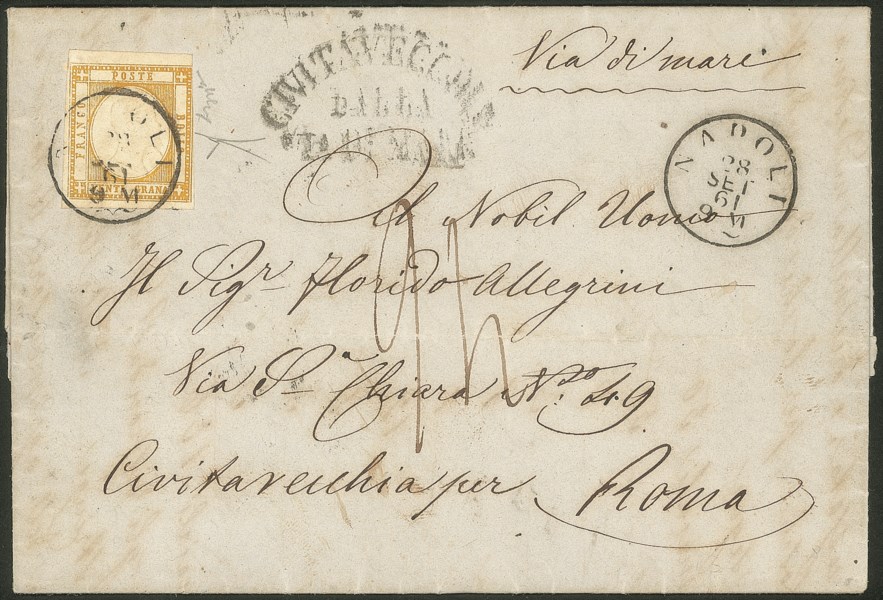 FRANCO
POSTE
BOLLO
GRANA
CIVITAVECCHIA
DALLA
VIA DI MARE
Via di mare
NAPOLI
28
SET
61
9 M
Il Nobil Uomo
Il Sigr Florido Allegrini
Via Sa Chiara No 49
Civitavecchia per Roma